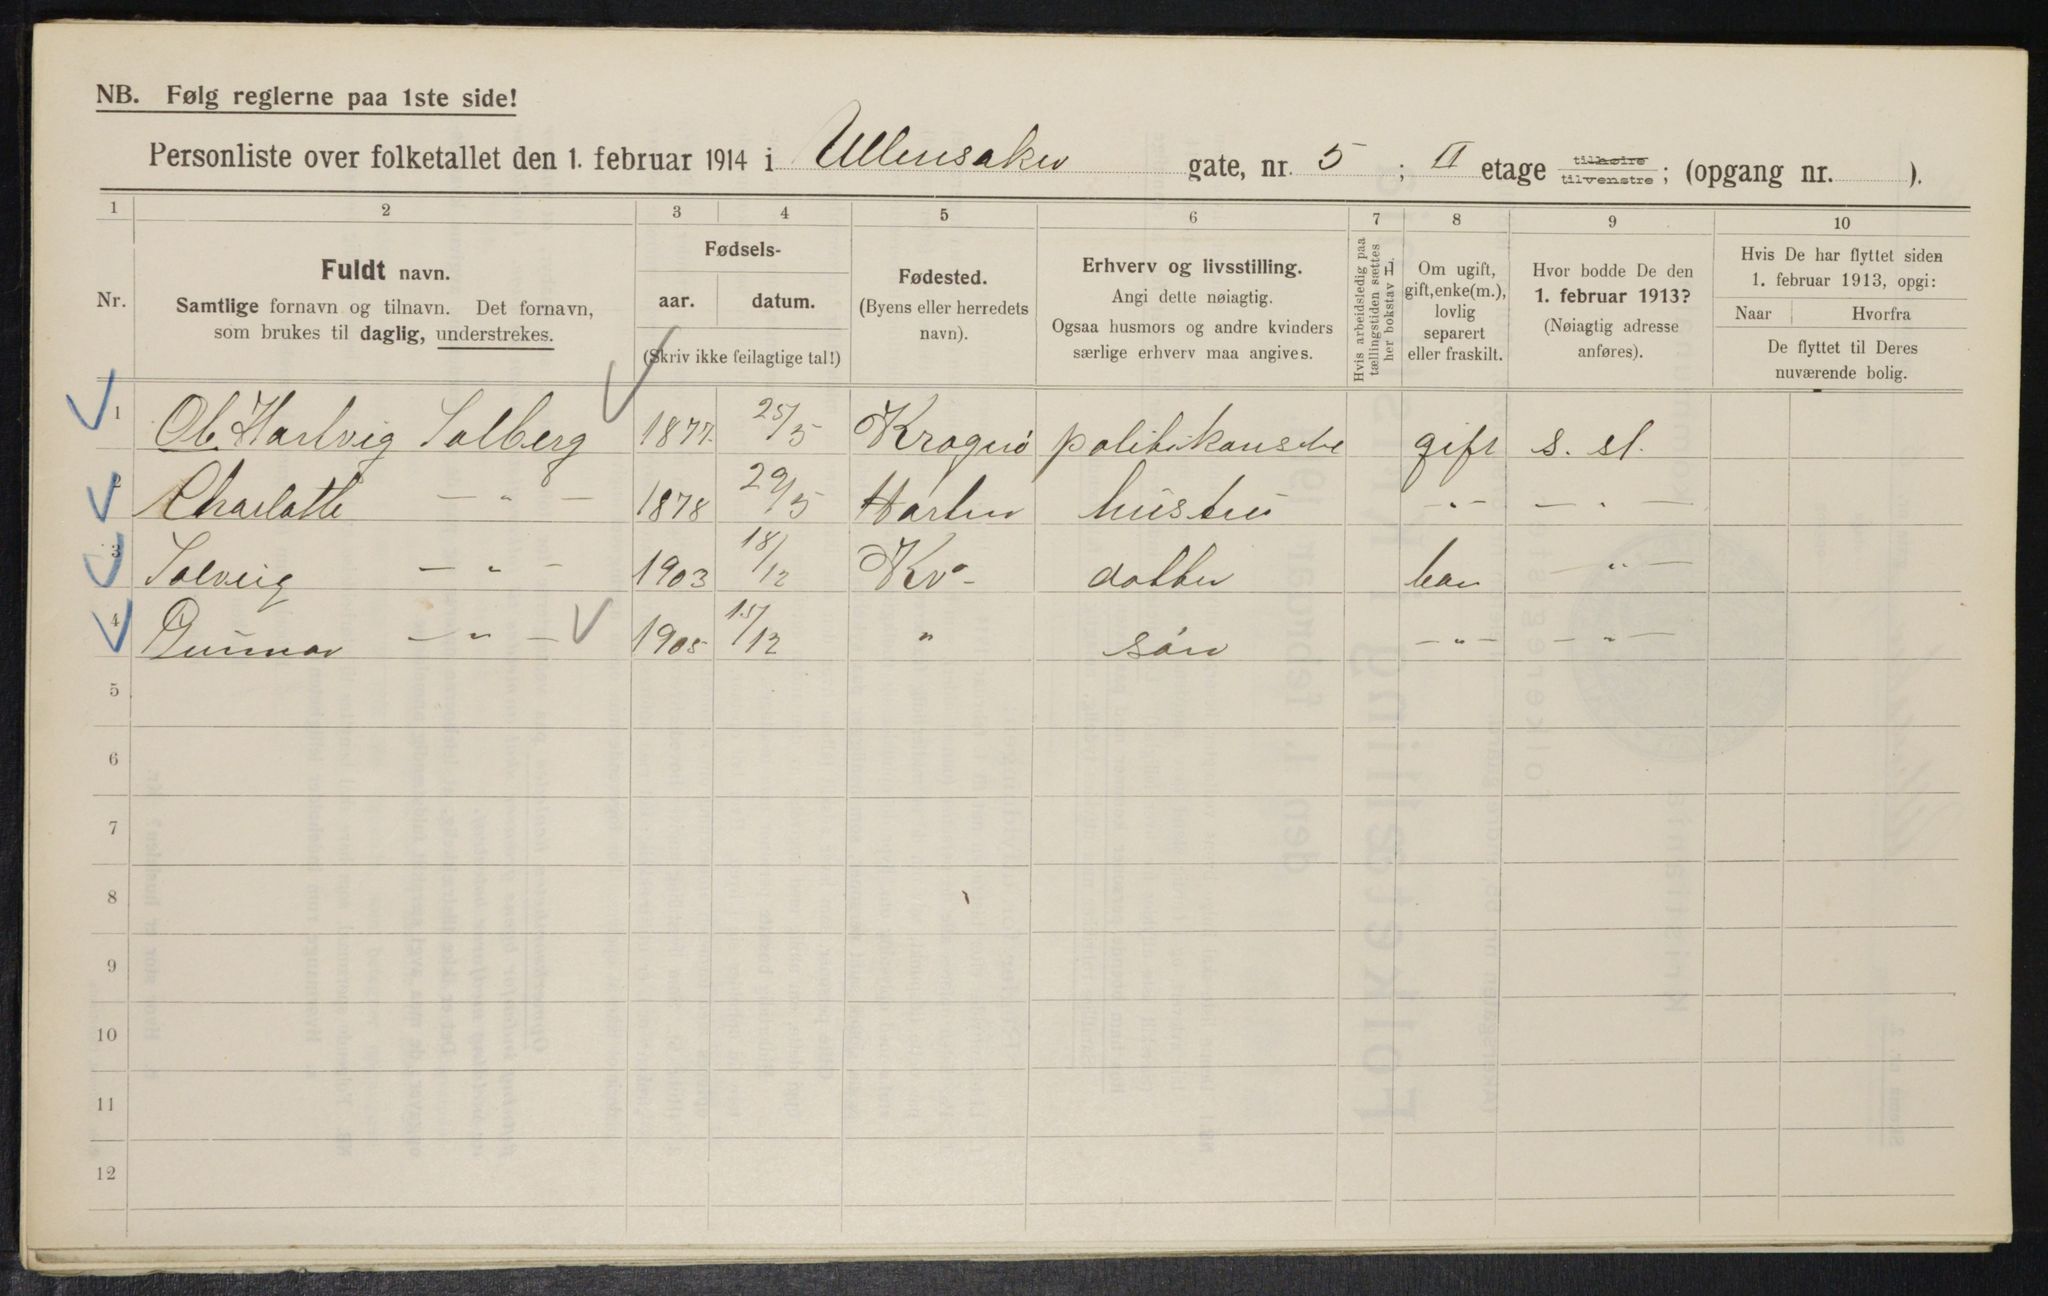 NB. Følg reglerne paa 1ste side!
Personliste over folketallet den 1. februar 1914 i Ullensaker gate, nr. 5 ; II etage tilhøire tilvenstre ; (opgang nr. ).
1 2 3 4 5 6 7 8 9 10
Nr.
Fuldt navn.
Samtlige fornavn og tilnavn. Det fornavn,
som brukes til daglig, understrekes.
Fødsels-
aar. datum.
(Skriv ikke feilagtige tal!)
Fødested.
(Byens eller herredets
navn).
Erhverv og livsstilling.
Angi dette nøiagtig.
Ogsaa husmors og andre kvinders
særlige erhverv maa angives.
Hvis arbeidsledig paa
tællingstiden sættes
her bokstav L.
Om ugift,
gift, enke(m.),
lovlig
separert
eller fraskilt.
Hvor bodde De den
1. februar 1913?
(Nøiagtig adresse
anføres).
Hvis De har flyttet siden
1. februar 1913, opgi:
Naar Hvorfra
De flyttet til Deres
nuværende bolig.
1 Hartvig Solberg 1877 25/5 Kragerø gift s. st.
2 Charlotte — " — 1878 29/5 hustru - " - — " —
3 Solveig — " — 1903 18/12 Kr.a datter — " —
4 Gunnar — " — 1905 15/12 " søn — " — — " —
5
6
7
8
9
10
11
12